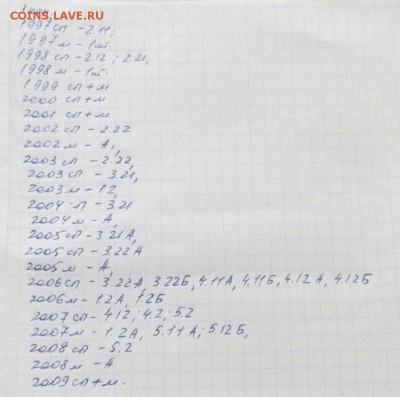 COINS.LAVE.RU
1 коп
1997 сп - 2.11;
1997 м - 1 шт.
1998 сп - 2.12; 2.21,
1998 м - 1 шт.
1999 сп + м
2000 сп + м
2001 сп + м
2002 сп - 2.22
2002 м - А,
2003 сп - 2.22,
2003 сп - 3.21,
2003 м - 1.2,
2004 сп - 3.21
2004 м - А,
2005 сп - 3.21А,
2005 сп - 3.22А
2005 м - А,
2006 сп - 3.22А, 3.22Б, 4.11А, 4.11Б, 4.12А, 4.12Б
2006 м - 1.2А, 1.2Б,
2007 сп - 4.12; 4.2; 5.2
2007 м - 1.2А, 5.11А; 5.12Б,
2008 сп - 5.2
2008 м - А
2009 сп + м.